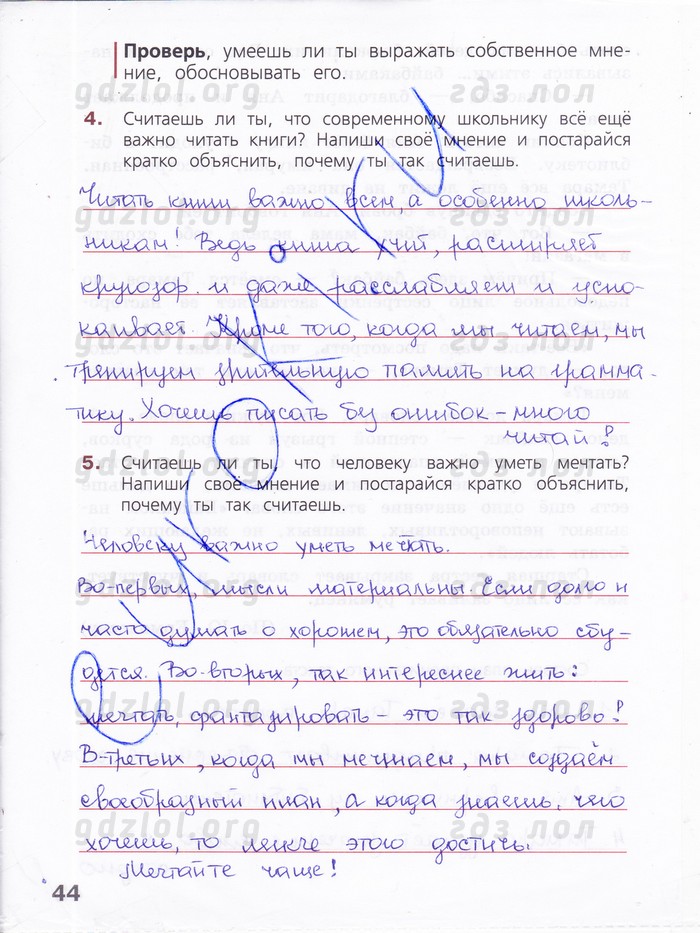 Проверь, умеешь ли ты выражать собственное мне-
ние, обосновывать его.
gdzlol.org гдз лол
4. Считаешь ли ты, что современному школьнику всё ещё
важно читать книги? Напиши своё мнение и постарайся
кратко объяснить, почему ты так считаешь.
Читать книги важно всем, а особенно школь-
gdzlol.org гдз лол
никам! Ведь книга учит, расширяет
кругозор и даже расслабляет и успо-
gdzlol.org гдз лол
каивает. Кроме того, когда мы читаем, мы
тренируем зрительную память на грамма-
тику. Хочешь писать без ошибок – много
читай!
gdzlol.org гдз лол
5. Считаешь ли ты, что человеку важно уметь мечтать?
Напиши своё мнение и постарайся кратко объяснить,
почему ты так считаешь.
Человеку важно уметь мечтать.
Во-первых, мысли материальны. Если долго и
gdzlol.org гдз лол
часто думать о хорошем, это обязательно сбу-
дется. Во-вторых, так интереснее жить:
мечтать, фантазировать – это так здорово!
gdzlol.org гдз лол
В-третьих, когда мы мечтаем, мы создаём
своеобразный план, а когда знаешь, чего
gdzlol.org гдз лол
хочешь, то легче этого достичь.
Мечтайте чаще!
44